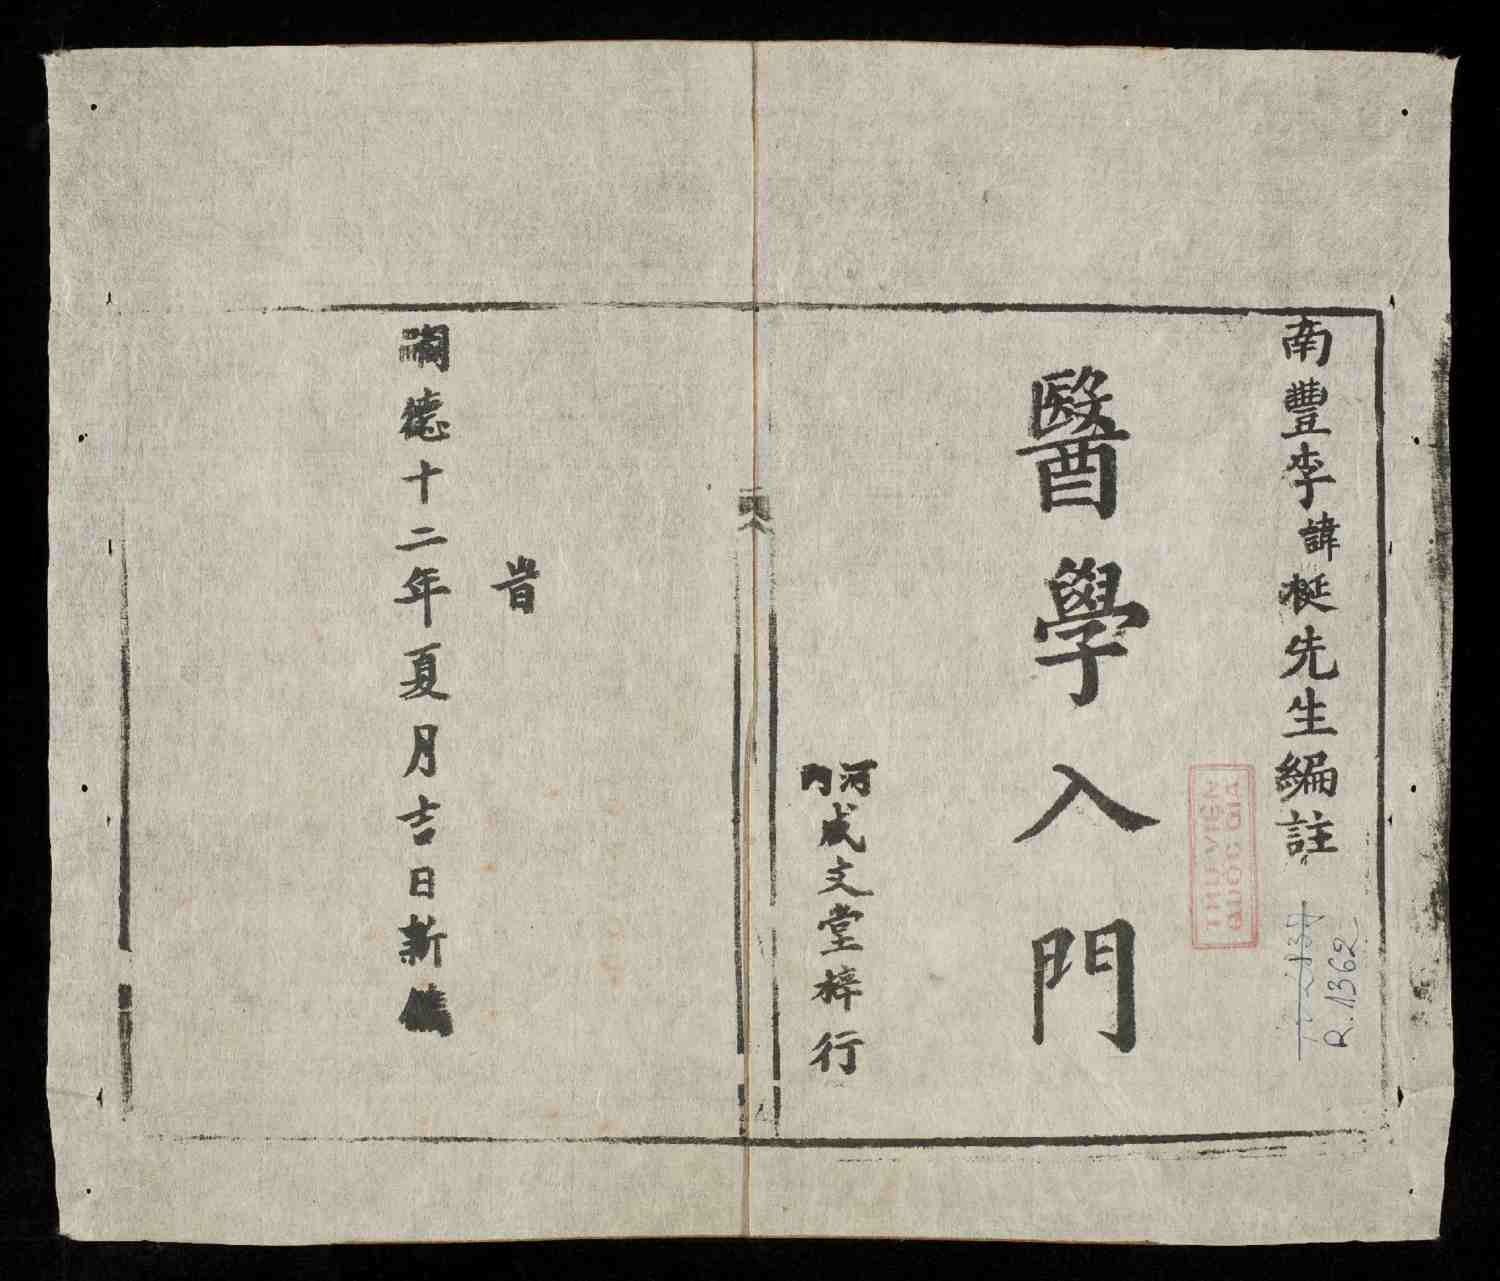 南豐李諱梴先生編註
醫學入門
河內
成文堂梓行
旹
嗣德十二年夏月吉日新鐫
THƯ VIỆN
QUỐC GIA
R.1362